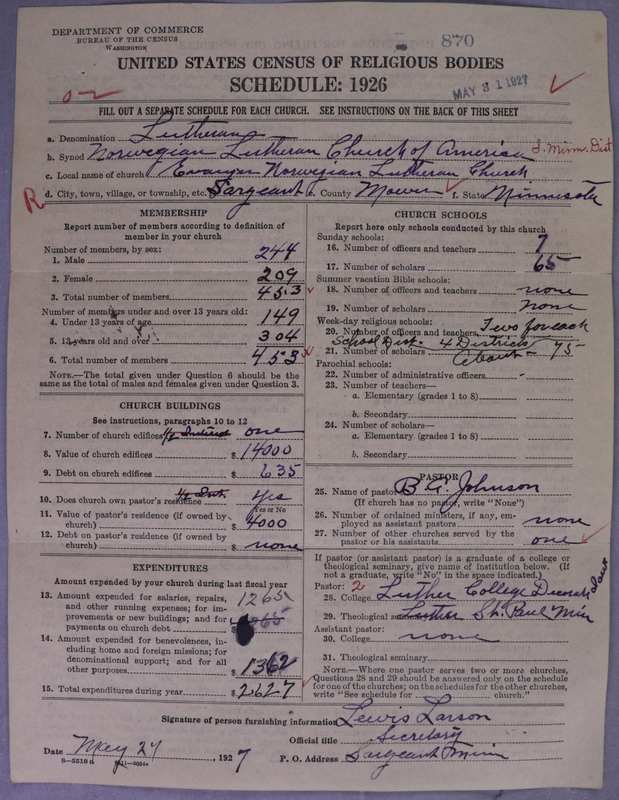 DEPARTMENT OF COMMERCE
BUREAU OF THE CENSUS
WASHINGTON
870
UNITED STATES CENSUS OF RELIGIOUS BODIES
SCHEDULE: 1926
MAY 31 1927
FILL OUT A SEPARATE SCHEDULE FOR EACH CHURCH. SEE INSTRUCTIONS ON THE BACK OF THIS SHEET
a. Denomination Lutheran
b. Synod Norwegian Lutheran Church of America S. Minn. Dist
c. Local name of church Evanger Norwegian Lutheran Church
R d. City, town, village, or township, etc. Sargeant e. County Mower f. State Minnesota
MEMBERSHIP
Report number of members according to definition of
member in your church
Number of members, by sex:
1. Male 244
2. Female 209
3. Total number of members 453
Number of members under and over 13 years old:
4. Under 13 years of age 149
5. 13 years old and over 304
6. Total number of members 453
NOTE.—The total given under Question 6 should be the
same as the total of males and females given under Question 3.
CHURCH BUILDINGS
See instructions, paragraphs 10 to 12
7. Number of church edifices one
8. Value of church edifices $ 14000
9. Debt on church edifices $ 635
10. Does church own pastor's residence yes
Yes or No
11. Value of pastor's residence (if owned by
church) $ 4000
12. Debt on pastor's residence (if owned by
church) $ none
EXPENDITURES
Amount expended by your church during last fiscal year
13. Amount expended for salaries, repairs,
and other running expenses; for im-
provements or new buildings; and for
payments on church debt $ 1265
14. Amount expended for benevolences, in-
cluding home and foreign missions; for
denominational support; and for all
other purposes $ 1362
15. Total expenditures during year $ 2627
CHURCH SCHOOLS
Report here only schools conducted by this church
Sunday schools:
16. Number of officers and teachers 7
17. Number of scholars 65
Summer vacation Bible schools:
18. Number of officers and teachers none
19. Number of scholars none
Week-day religious schools:
20. Number of officers and teachers Two for each
School Dist. 4 Districts
21. Number of scholars About - 75
Parochial schools:
22. Number of administrative officers
23. Number of teachers—
a. Elementary (grades 1 to 8)
b. Secondary
24. Number of scholars—
a. Elementary (grades 1 to 8)
b. Secondary
PASTOR
25. Name of pastor B A. Johnson
(If church has no pastor, write "None")
26. Number of ordained ministers, if any, em-
ployed as assistant pastors none
27. Number of other churches served by the
pastor or his assistants one
If pastor (or assistant pastor) is a graduate of a college or
theological seminary, give name of institution below. (If
not a graduate, write "No" in the space indicated.)
Pastor: 2
28. College Luther College Decorah Iowa
29. Theological seminary Luther St. Paul Min
Assistant pastor:
30. College none
31. Theological seminary
NOTE.—Where one pastor serves two or more churches,
Questions 28 and 29 should be answered only on the schedule
for one of the churches; on the schedules for the other churches,
write "See schedule for church."
Signature of person furnishing information Lewis Larson
Official title Secretary
Date May 24, 1927
P. O. Address Sargeant Minn
8—5518a